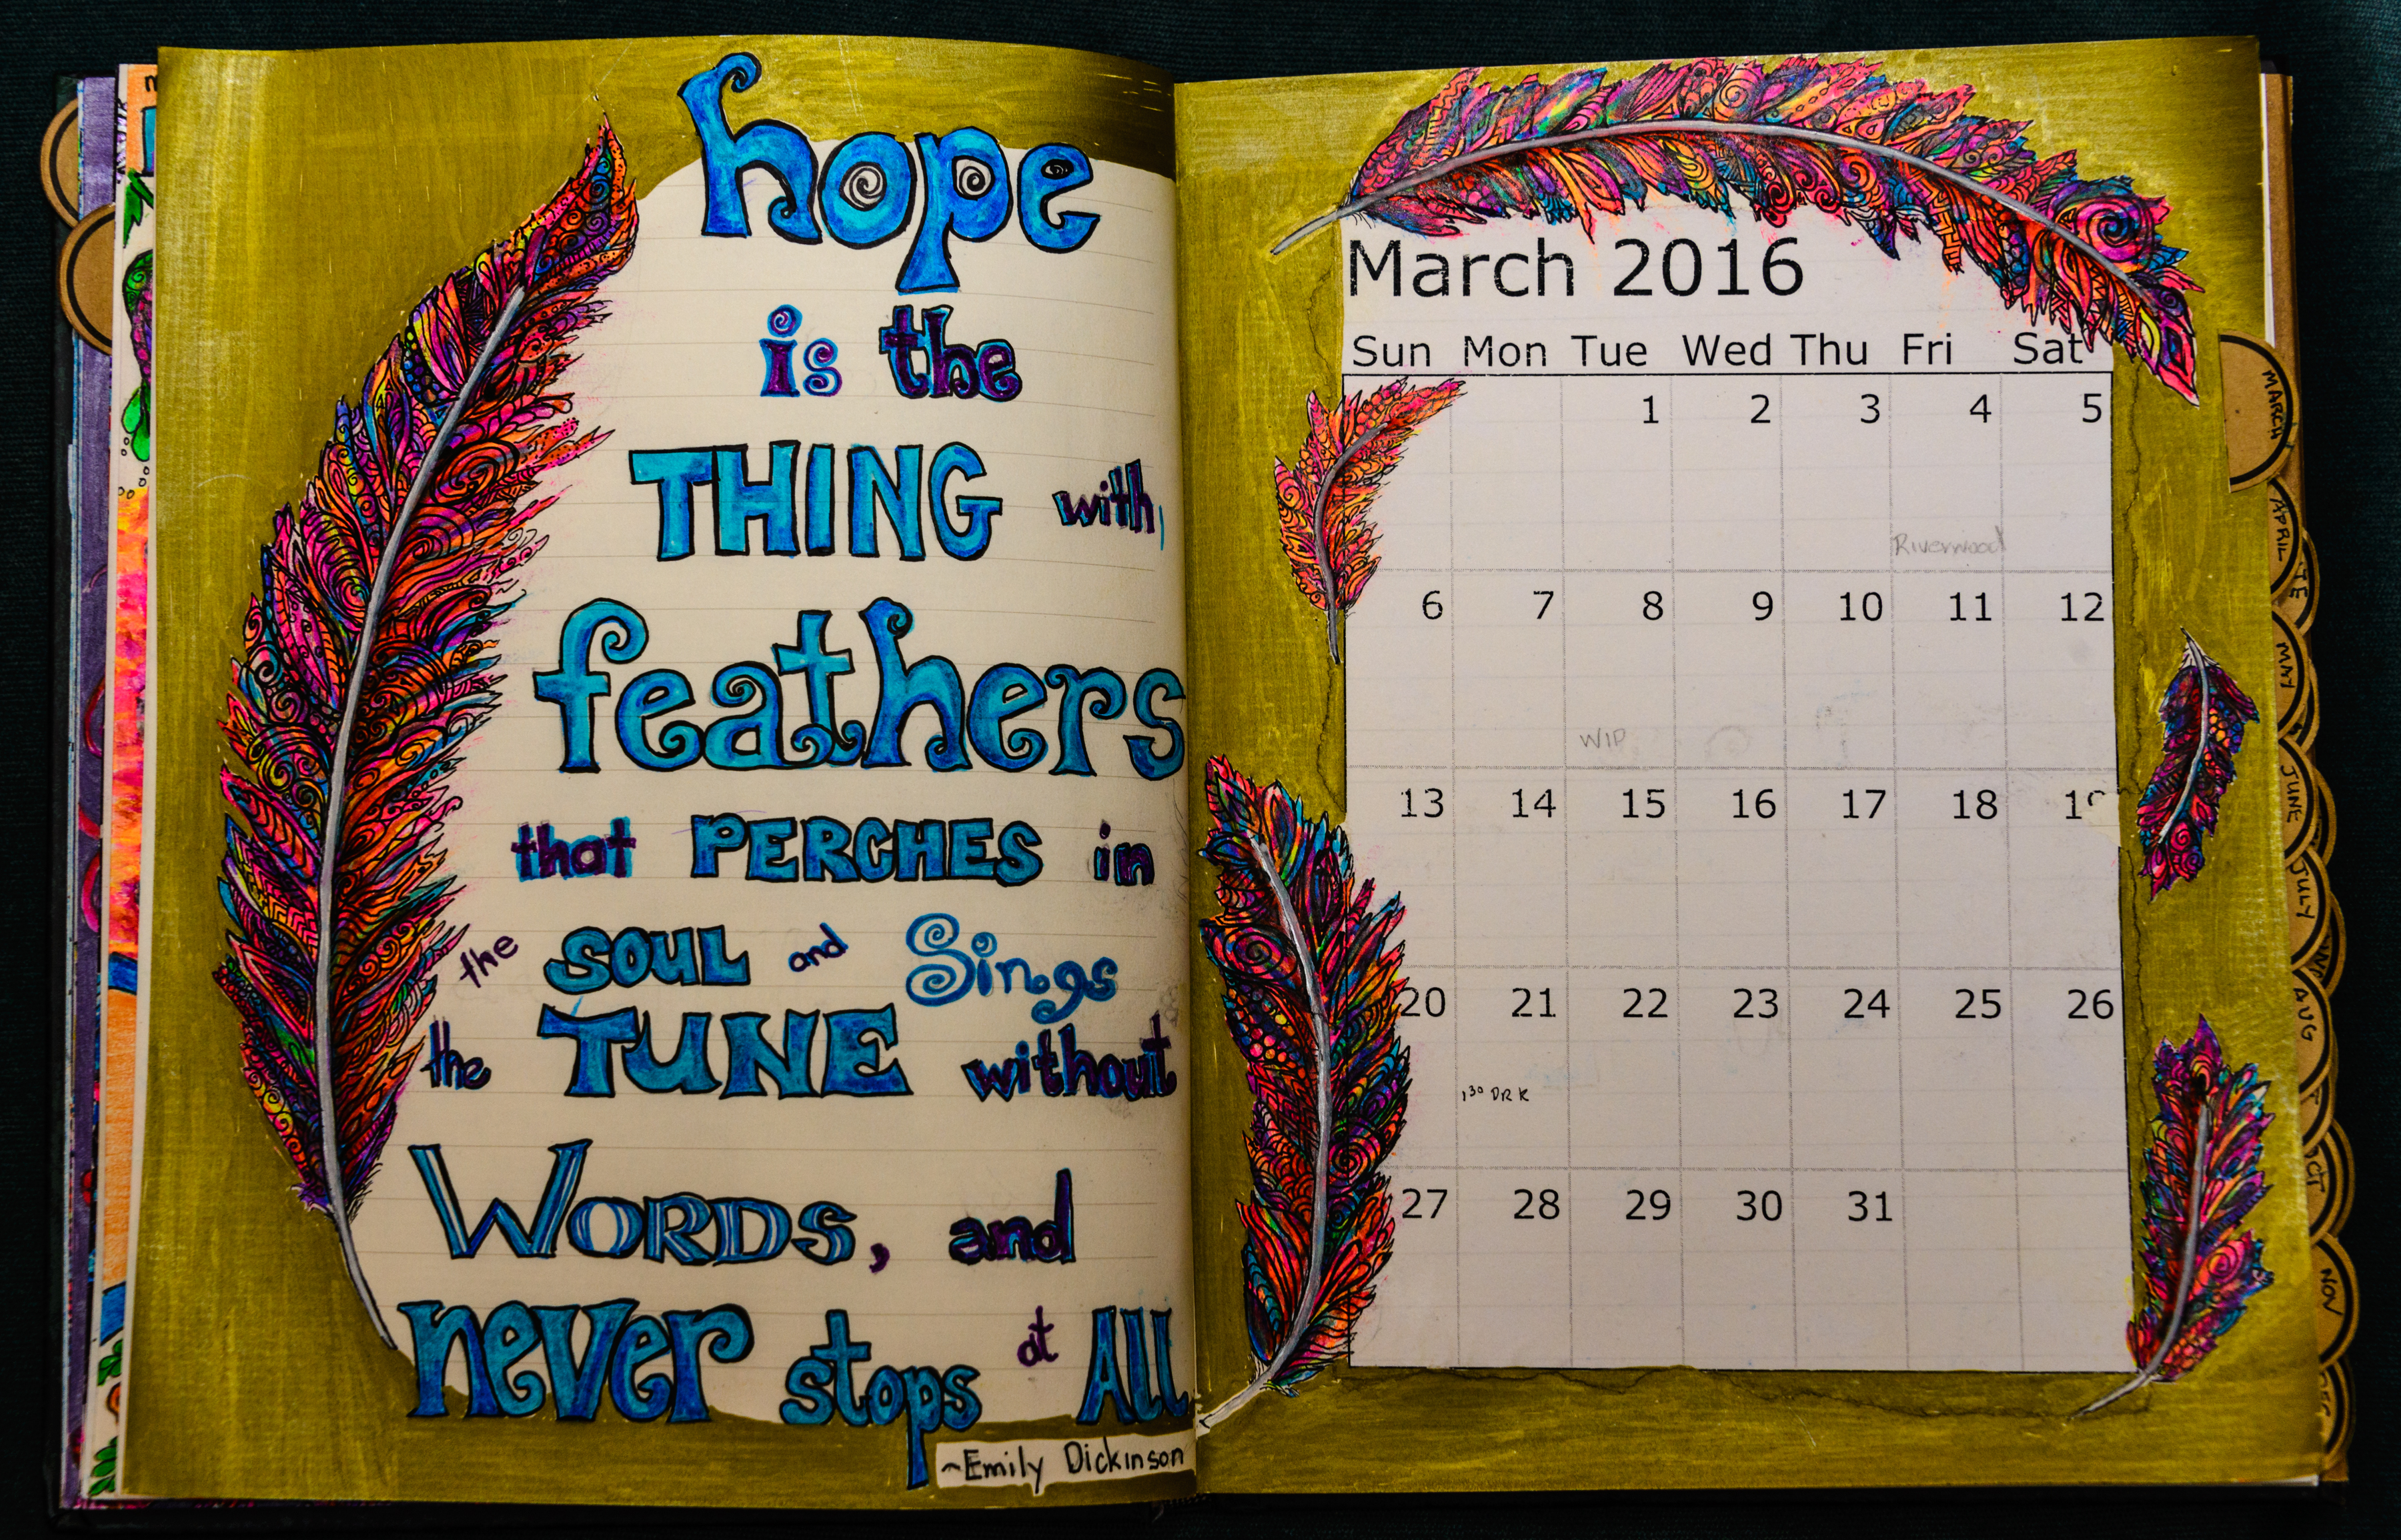 hope
is the
THING with
feathers
that PERCHES in
the SOUL and Sings
the TUNE without
WORDS, and
never stops at All
~Emily Dickinson
March 2016
Sun Mon Tue Wed Thu Fri Sat
1 2 3 4 5
Riverwood
6 7 8 9 10 11 12
WIP
13 14 15 16 17 18 19
20 21 22 23 24 25 26
1 30 DR K
27 28 29 30 31
MARCH
APRIL
MAY
JUNE
JULY
AUG
NOV